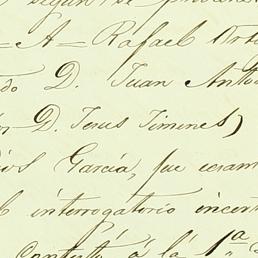 según se
= A = Rafael
do D. Juan Anto
D. Jesus Jimenes)
García, fue
l interrogatorio incer
Contestó á la 1ª